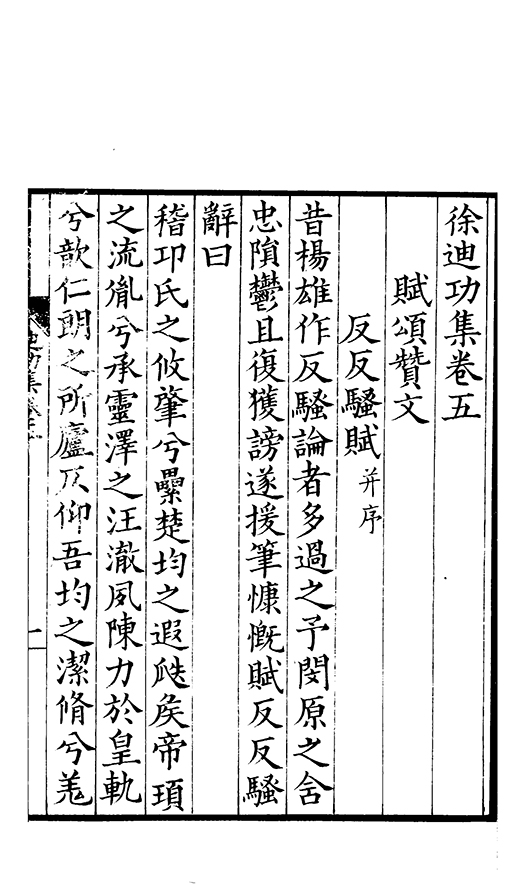 徐迪功集卷五
賦頌贊文
反反騷賦并序
昔楊雄作反騷論者多過之予閔原之舍
忠隕鬱且復獲謗遂援筆慷慨賦反反騷
辭曰
稽卭氏之攸肇兮纍楚均之遐瓞矦帝頊
之流胤兮承靈澤之汪濊夙陳力於皇軌
兮歆仁朗之所廬仄仰吾均之潔脩兮羗
一